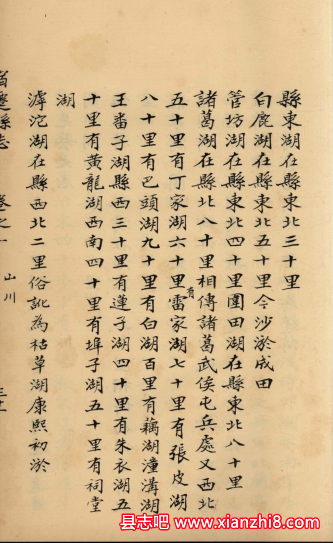 縣東湖在縣東北三十里
白鹿湖在縣東北五十里今沙淤成田
管坊湖在縣東北四十里圍田湖在縣東北八十里
諸葛湖在縣北八十里相傳諸葛武侯屯兵處又西北
五十里有丁家湖六十里有雷家湖七十里有張皮湖
八十里有巴頭湖九十里有白湖百里有藕湖潼溝湖
王畨子湖縣西三十里有蓮子湖四十里有朱衣湖五
十里有黃龍湖西南四十里有埠子湖五十里有祠堂
湖
滹沱湖在縣西北二里俗訛為枯草湖康熙初淤
遷縣志 卷之一 山川
县志吧→www.xianzhi8.com